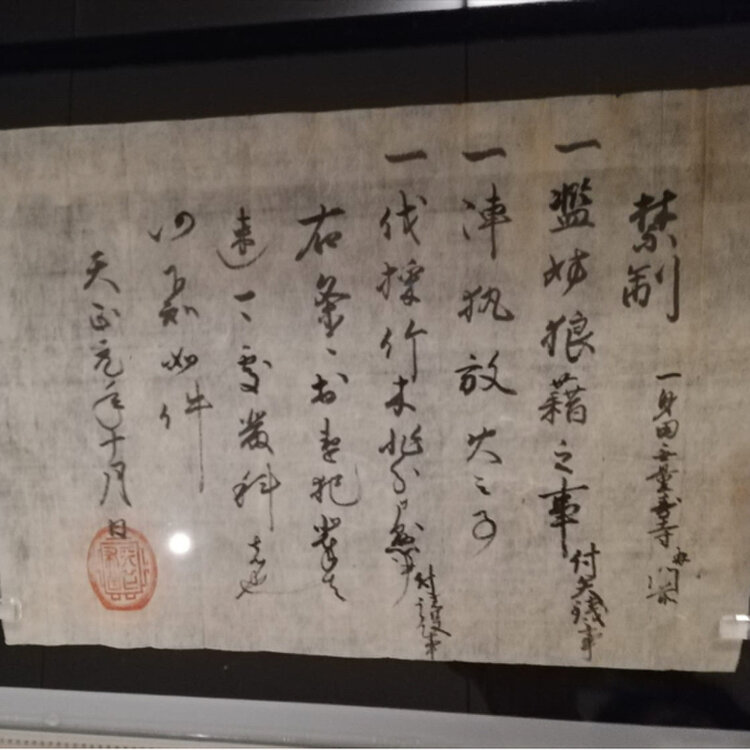 禁制 一身田無量寿寺
一濫妨狼藉之事 付矢銭事
一陣執放火之事
一伐採竹木非分 事 付 事
右条々於違犯輩者
速可処厳科者也
仍下知如件
天正元年十月日